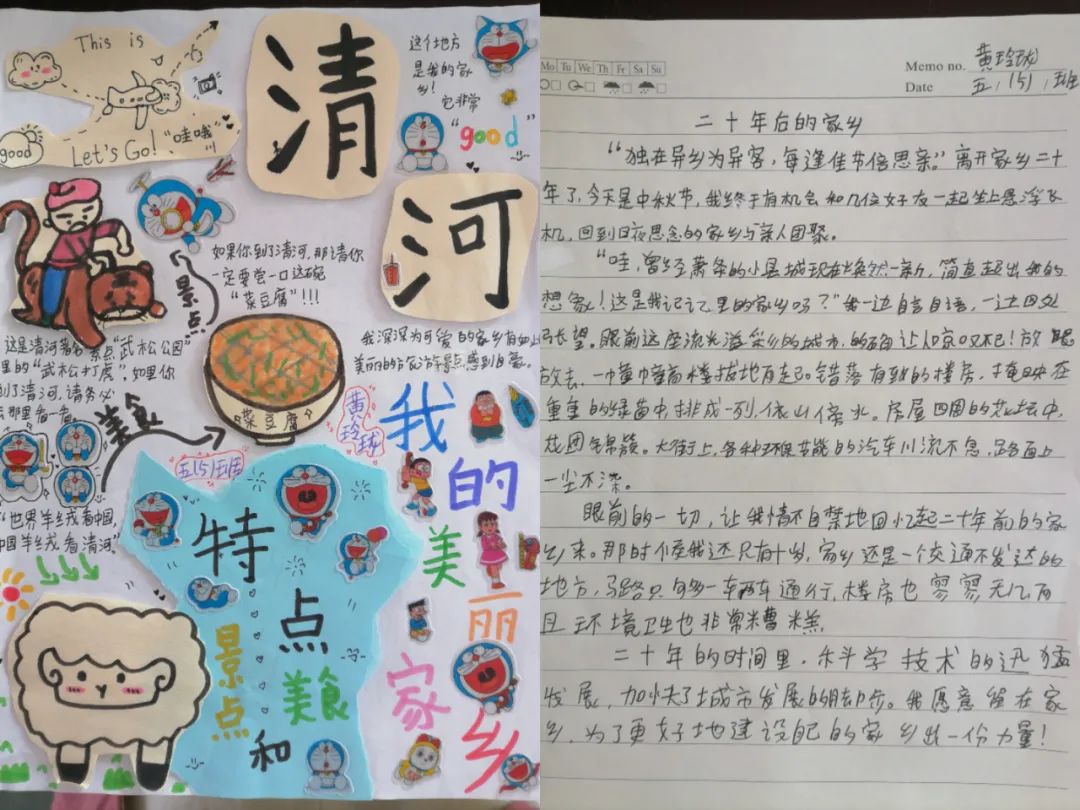 This is
Let's Go! "哇哦"
good
清
河
这个地方
是我的家
乡!
它非常
"good"
如果你到了清河,那请你
一定要尝一口这碗
"菜豆腐"!!!
景
点
这是清河著名景点"武松公园"
里的"武松打虎",如果你
到了清河,请务必
去那里看一看
美食
菜豆腐
我深深为可爱的家乡有如此
美丽的
景点感到自豪。
黄
玲
珑
五(5)班
"世界羊绒看中国,
中国羊绒看清河"
特
点
景
点
和
美食
我
的
美
丽
家
乡
Mo Tu We Th Fr Sa Su
Memo no. 黄玲珑
Date 五(5)班
二十年后的家乡
"独在异乡为异客,每逢佳节倍思亲。"离开家乡二十
年了,今天是中秋节,我终于有机会和几位好友一起坐上悬浮飞
机,回到日夜思念的家乡与亲人团聚。
"哇,曾经萧条的小县城现在焕然一新,简直超出我的
想象!这是我记忆里的家乡吗?"我一边自言自语,一边四处
张望。眼前这座流光溢彩的城市,的确让人惊叹不已!放眼
放去,一幢幢高楼拔地而起。错落有致的楼房,掩映在
重重的绿茵中,排成一列,依山傍水。房屋四周的花坛中,
花团锦簇。大街上,各种环保节能的汽车川流不息,路面上
一尘不染。
眼前的一切,让我情不自禁地回忆起二十年前的家
乡来。那时候我还只有十岁,家乡还是一个交通不发达的
地方,马路只够一车两车通行,楼房也寥寥无几,而
且环境卫生也非常糟糕
二十年的时间里,科学技术的迅猛
发展,加快了城市发展的脚步。我愿意留在家
乡,为了更好地建设自己的家乡出一份力量!